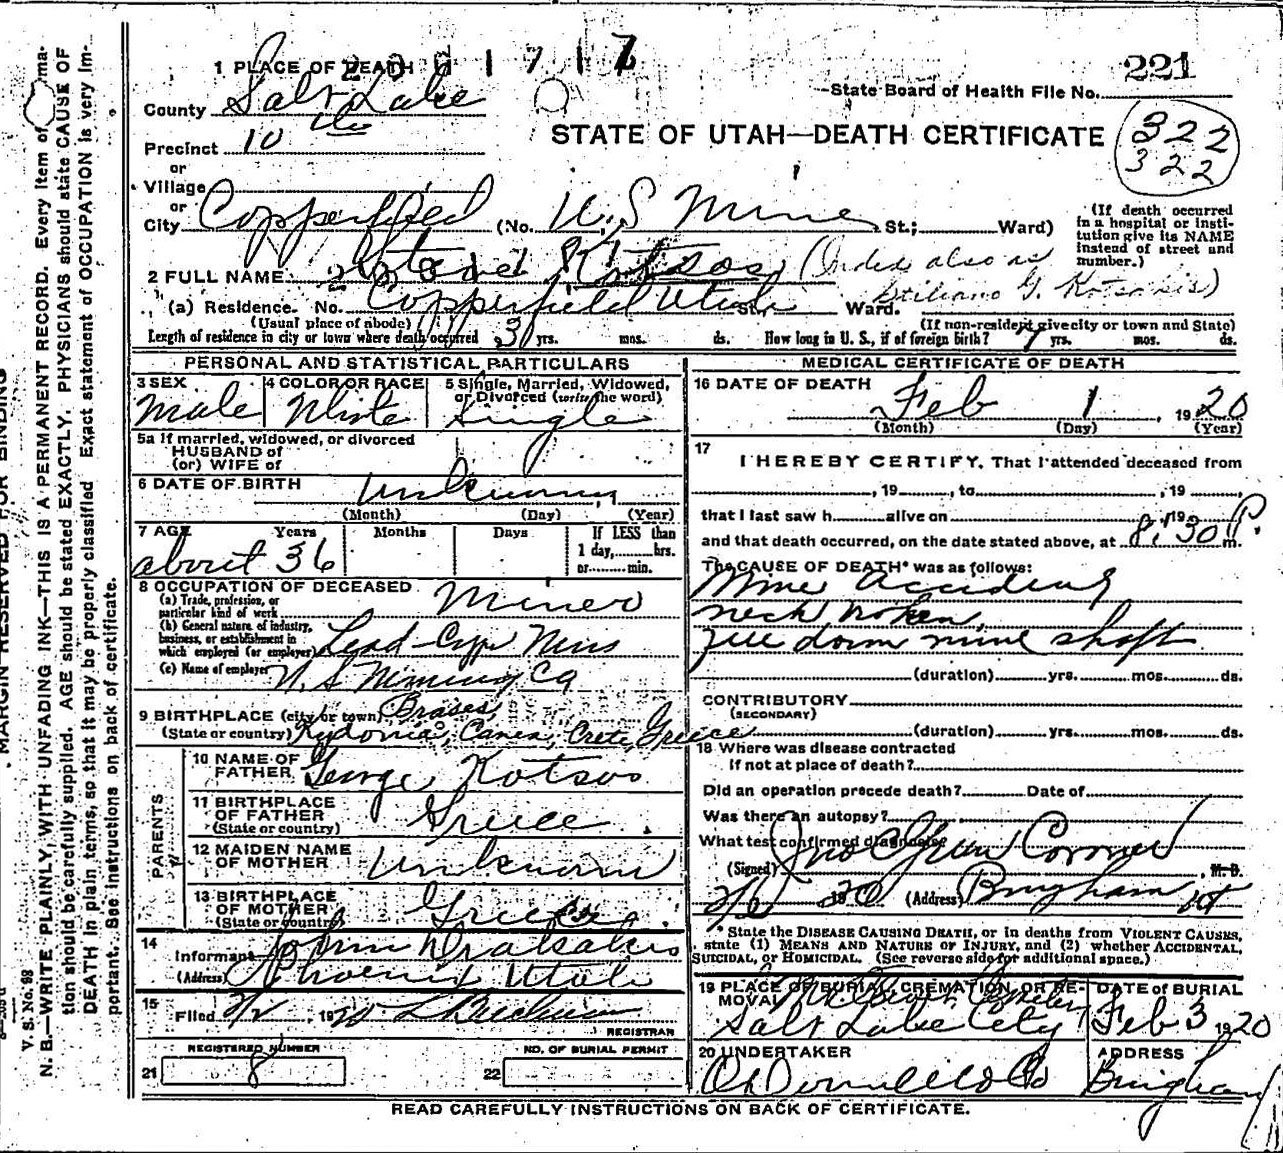 221
State Board of Health File No.
322
322
1 PLACE OF DEATH
County Salt Lake
STATE OF UTAH—DEATH CERTIFICATE
Precinct 10
or
Village
or
City Copperfield (No. U. S Mine St.; Ward)
(If death occurred in a hospital or institution give its NAME instead of street and number.)
2 FULL NAME Steve Kotsos (Order also as
Stiliano G. Kotsakis)
(a) Residence. No. Copperfield Utah St., Ward.
(Usual place of abode) (If non-resident give city or town and State)
Length of residence in city or town where death occurred 3 yrs. mos. ds. How long in U. S., if of foreign birth? 7 yrs. mos. ds.
PERSONAL AND STATISTICAL PARTICULARS
3 SEX
Male
4 COLOR OR RACE
White
5 Single, Married, Widowed, or Divorced (write the word)
Single
5a If married, widowed, or divorced
HUSBAND of
(or) WIFE of
6 DATE OF BIRTH Unknown
(Month) (Day) (Year)
7 AGE Years Months Days If LESS than
1 day, hrs.
or min.
about 36
8 OCCUPATION OF DECEASED
(a) Trade, profession, or
particular kind of work Miner
(b) General nature of industry,
business, or establishment in
which employed (or employer) Lead-
(c) Name of employer U. S Mining Co
9 BIRTHPLACE (city or town) Brases,
(State or country) Kydonia, Canea, Crete, Greece
PARENTS
10 NAME OF
FATHER George Kotsos
11 BIRTHPLACE
OF FATHER Greece
(State or country)
12 MAIDEN NAME
OF MOTHER Unknown
13 BIRTHPLACE
OF MOTHER Greece
(State or country)
14
Informant John
(Address) Phoenix Utah
15
Filed 19
REGISTRAR
REGISTERED NUMBER
21 8
NO. OF BURIAL PERMIT
22
MEDICAL CERTIFICATE OF DEATH
16 DATE OF DEATH
Feb 1, 1920
(Month) (Day) (Year)
17
I HEREBY CERTIFY, That I attended deceased from
, 19 , to , 19 ,
that I last saw h alive on , 19
and that death occurred, on the date stated above, at 8:30 P. m.
The CAUSE OF DEATH* was as follows:
Mine Accident
neck broken,
fell down mine shaft
(duration) yrs. mos. ds.
CONTRIBUTORY
(SECONDARY)
(duration) yrs. mos. ds.
18 Where was disease contracted
if not at place of death?
Did an operation precede death? Date of
Was there an autopsy?
What test confirmed diagnosis?
(Signed) , M. D.
(Address) Bingham Ut
* State the DISEASE CAUSING DEATH, or in deaths from VIOLENT CAUSES,
state (1) MEANS AND NATURE OF INJURY, and (2) whether ACCIDENTAL,
SUICIDAL, or HOMICIDAL. (See reverse side for additional space.)
19 PLACE OF BURIAL, CREMATION, OR REMOVAL
Salt Lake City
DATE of BURIAL
Feb 3 1920
20 UNDERTAKER
ADDRESS
Bingham
READ CAREFULLY INSTRUCTIONS ON BACK OF CERTIFICATE.
MARGIN RESERVED FOR BINDING
V. S. No. 98
N. B.—WRITE PLAINLY, WITH UNFADING INK—THIS IS A PERMANENT RECORD. Every item of information should be carefully supplied. AGE should be stated EXACTLY. PHYSICIANS should state CAUSE OF DEATH in plain terms, so that it may be properly classified. Exact statement of OCCUPATION is very important. See instructions on back of certificate.